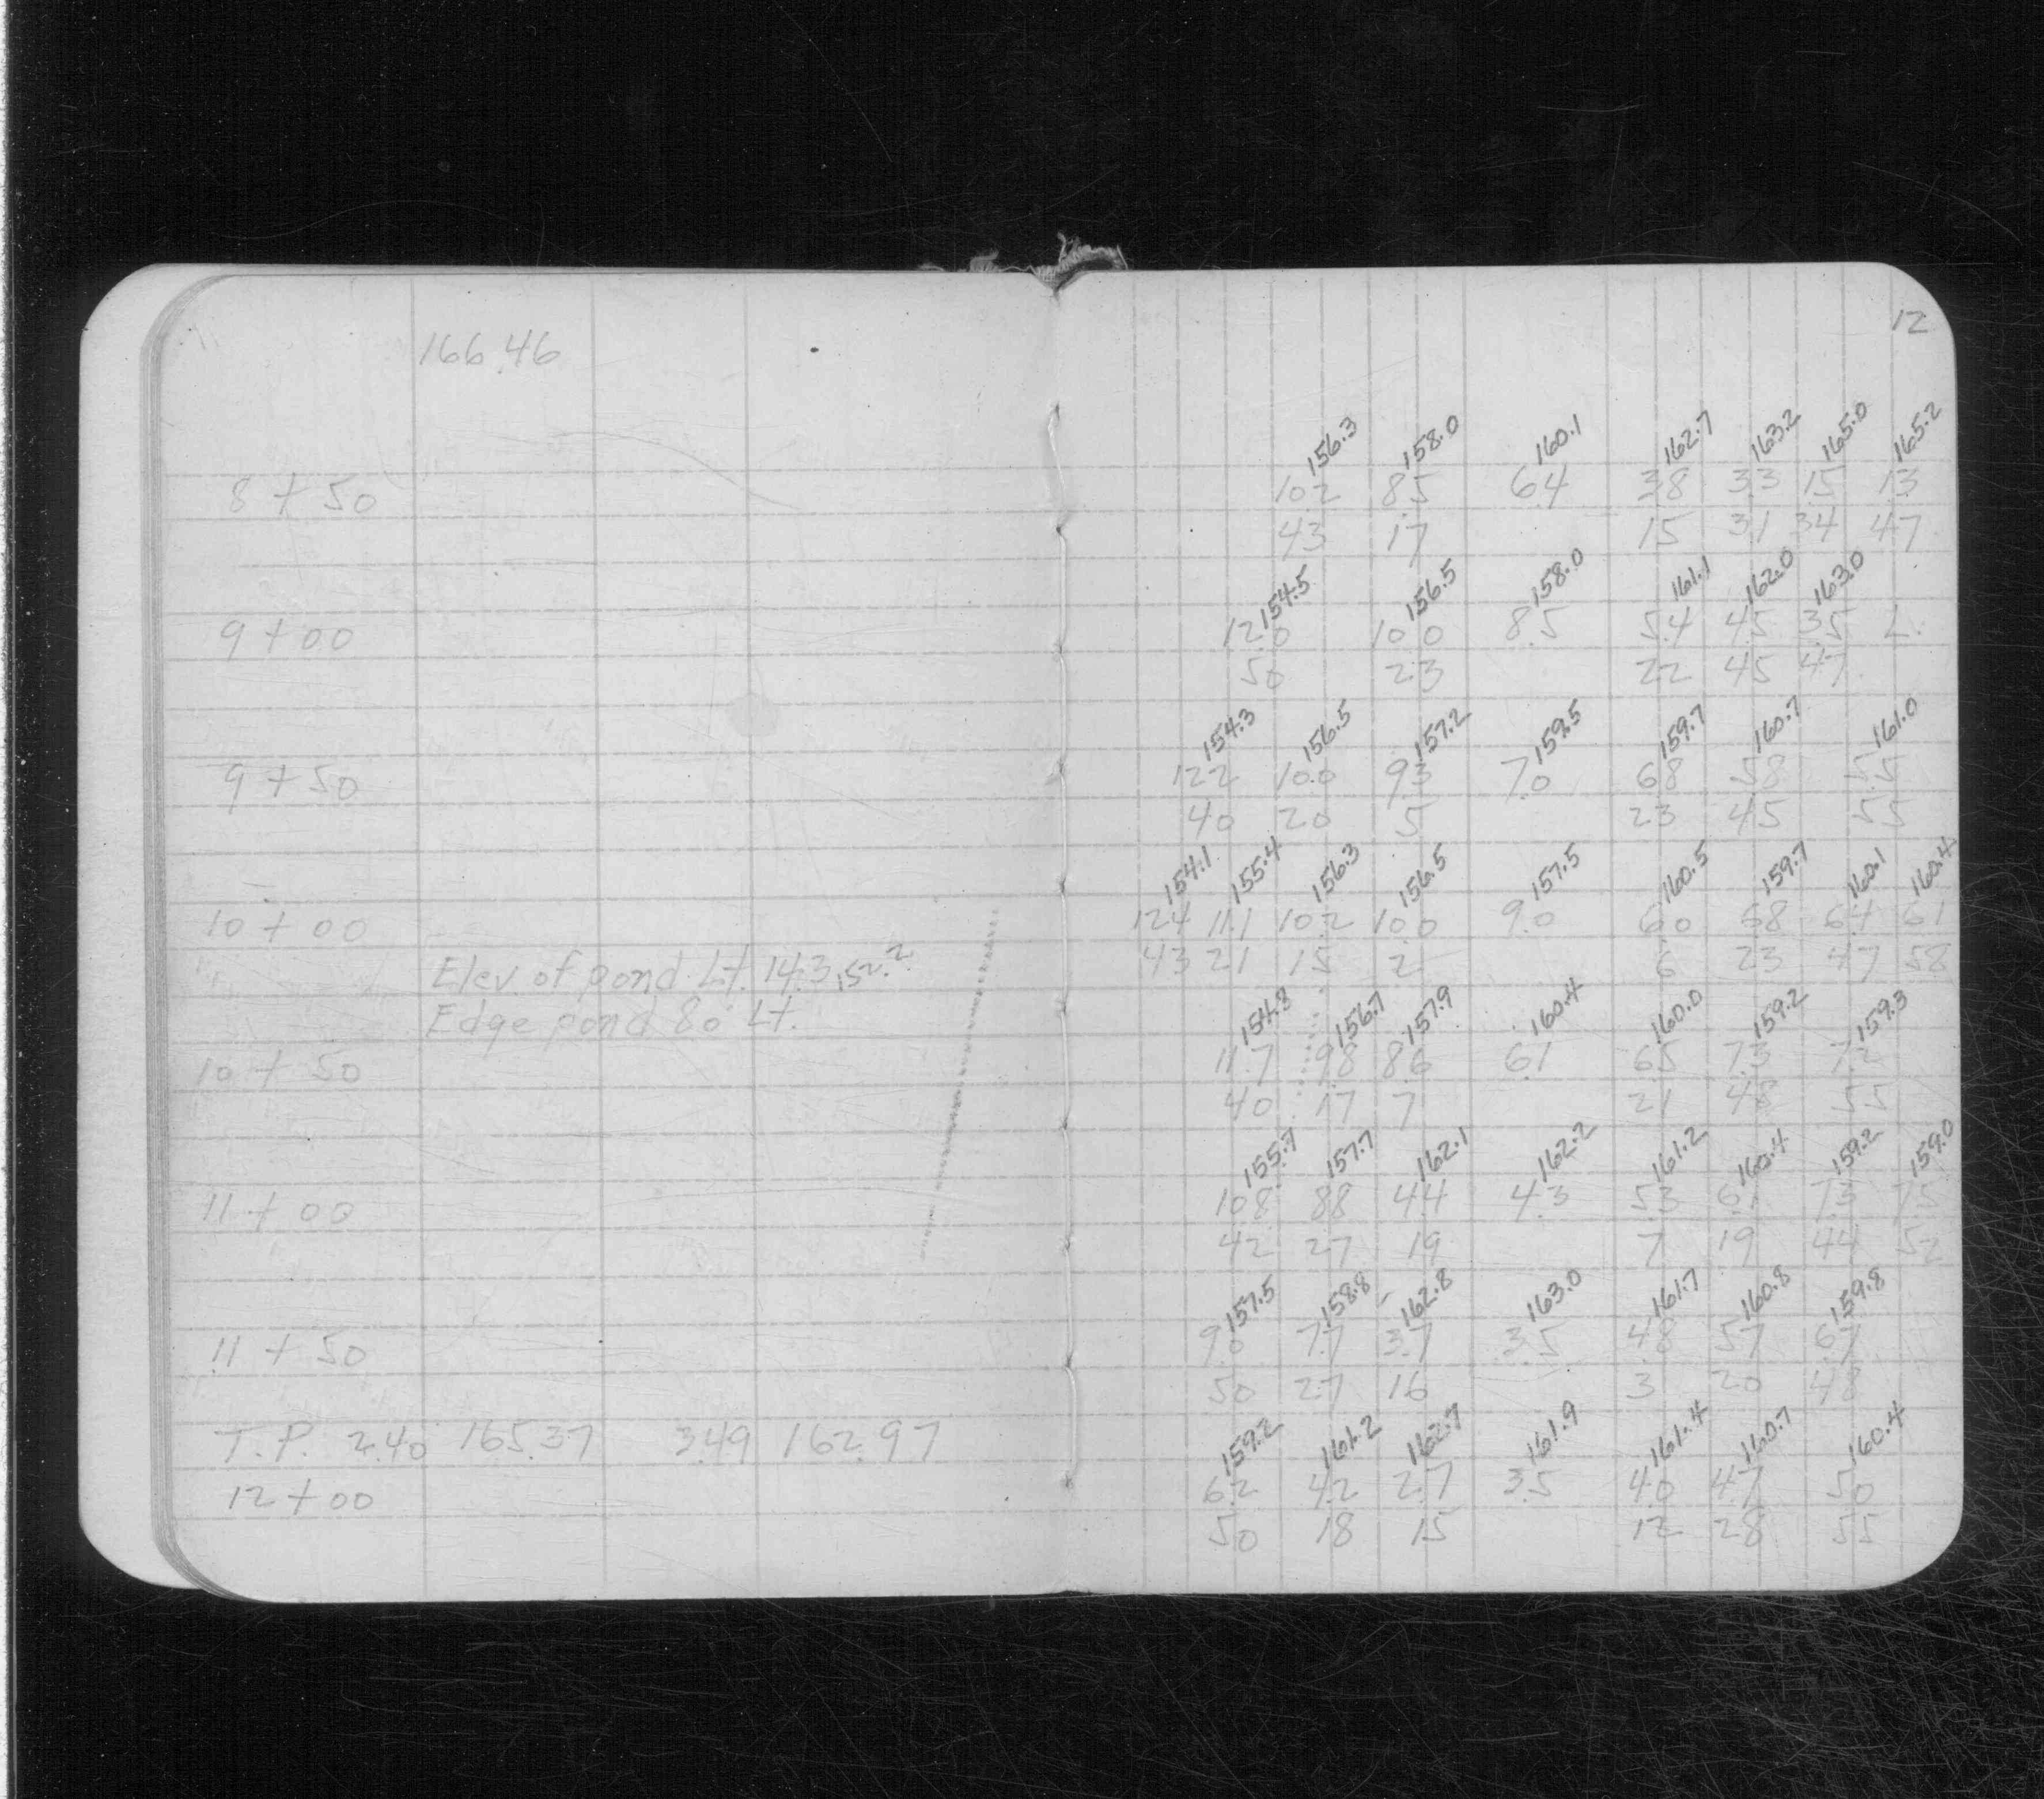 12
166.46
156.3 158.0 160.1 162.7 163.2 165.0 165.2
8 + 50 10.2 8.5 6.4 3.8 3.3 1.5 1.3
43 17 15 31 34 47
154.5 156.5 158.0 161.1 162.0 163.0
9 + 00 12.0 10.0 8.5 5.4 4.5 3.5 L.
50 23 22 45 47
154.3 156.5 157.2 159.5 159.7 160.7 161.0
9 + 50 12.2 10.0 9.3 7.0 6.8 5.8 5.5
40 20 5 23 45 55
154.1 155.4 156.3 156.5 157.5 160.5 159.7 160.1 160.4
10 + 00 12.4 11.1 10.2 10.0 9.0 6.0 6.8 6.4 6.1
Elev of pond Lt. 14.3 152.2 43 21 15 2 6 23 47 58
Edge pond 80' Lt.
154.8 156.7 157.9 160.4 160.0 159.2 159.3
10 + 50 11.7 9.8 8.6 6.1 6.5 7.3 7.2
40 17 7 21 48 55
155.7 157.7 162.1 162.2 161.2 160.4 159.2 159.0
11 + 00 10.8 8.8 4.4 4.3 5.3 6.1 7.3 7.5
42 27 19 7 19 44 52
157.5 158.8 162.8 163.0 161.7 160.8 159.8
11 + 50 9.0 7.7 3.7 3.5 4.8 5.7 6.7
50 27 16 3 20 48
T.P. 2.40 165.37 3.49 162.97
159.2 161.2 162.7 161.9 161.4 160.7 160.4
12 + 00 6.2 4.2 2.7 3.5 4.0 4.7 5.0
50 18 15 12 28 55